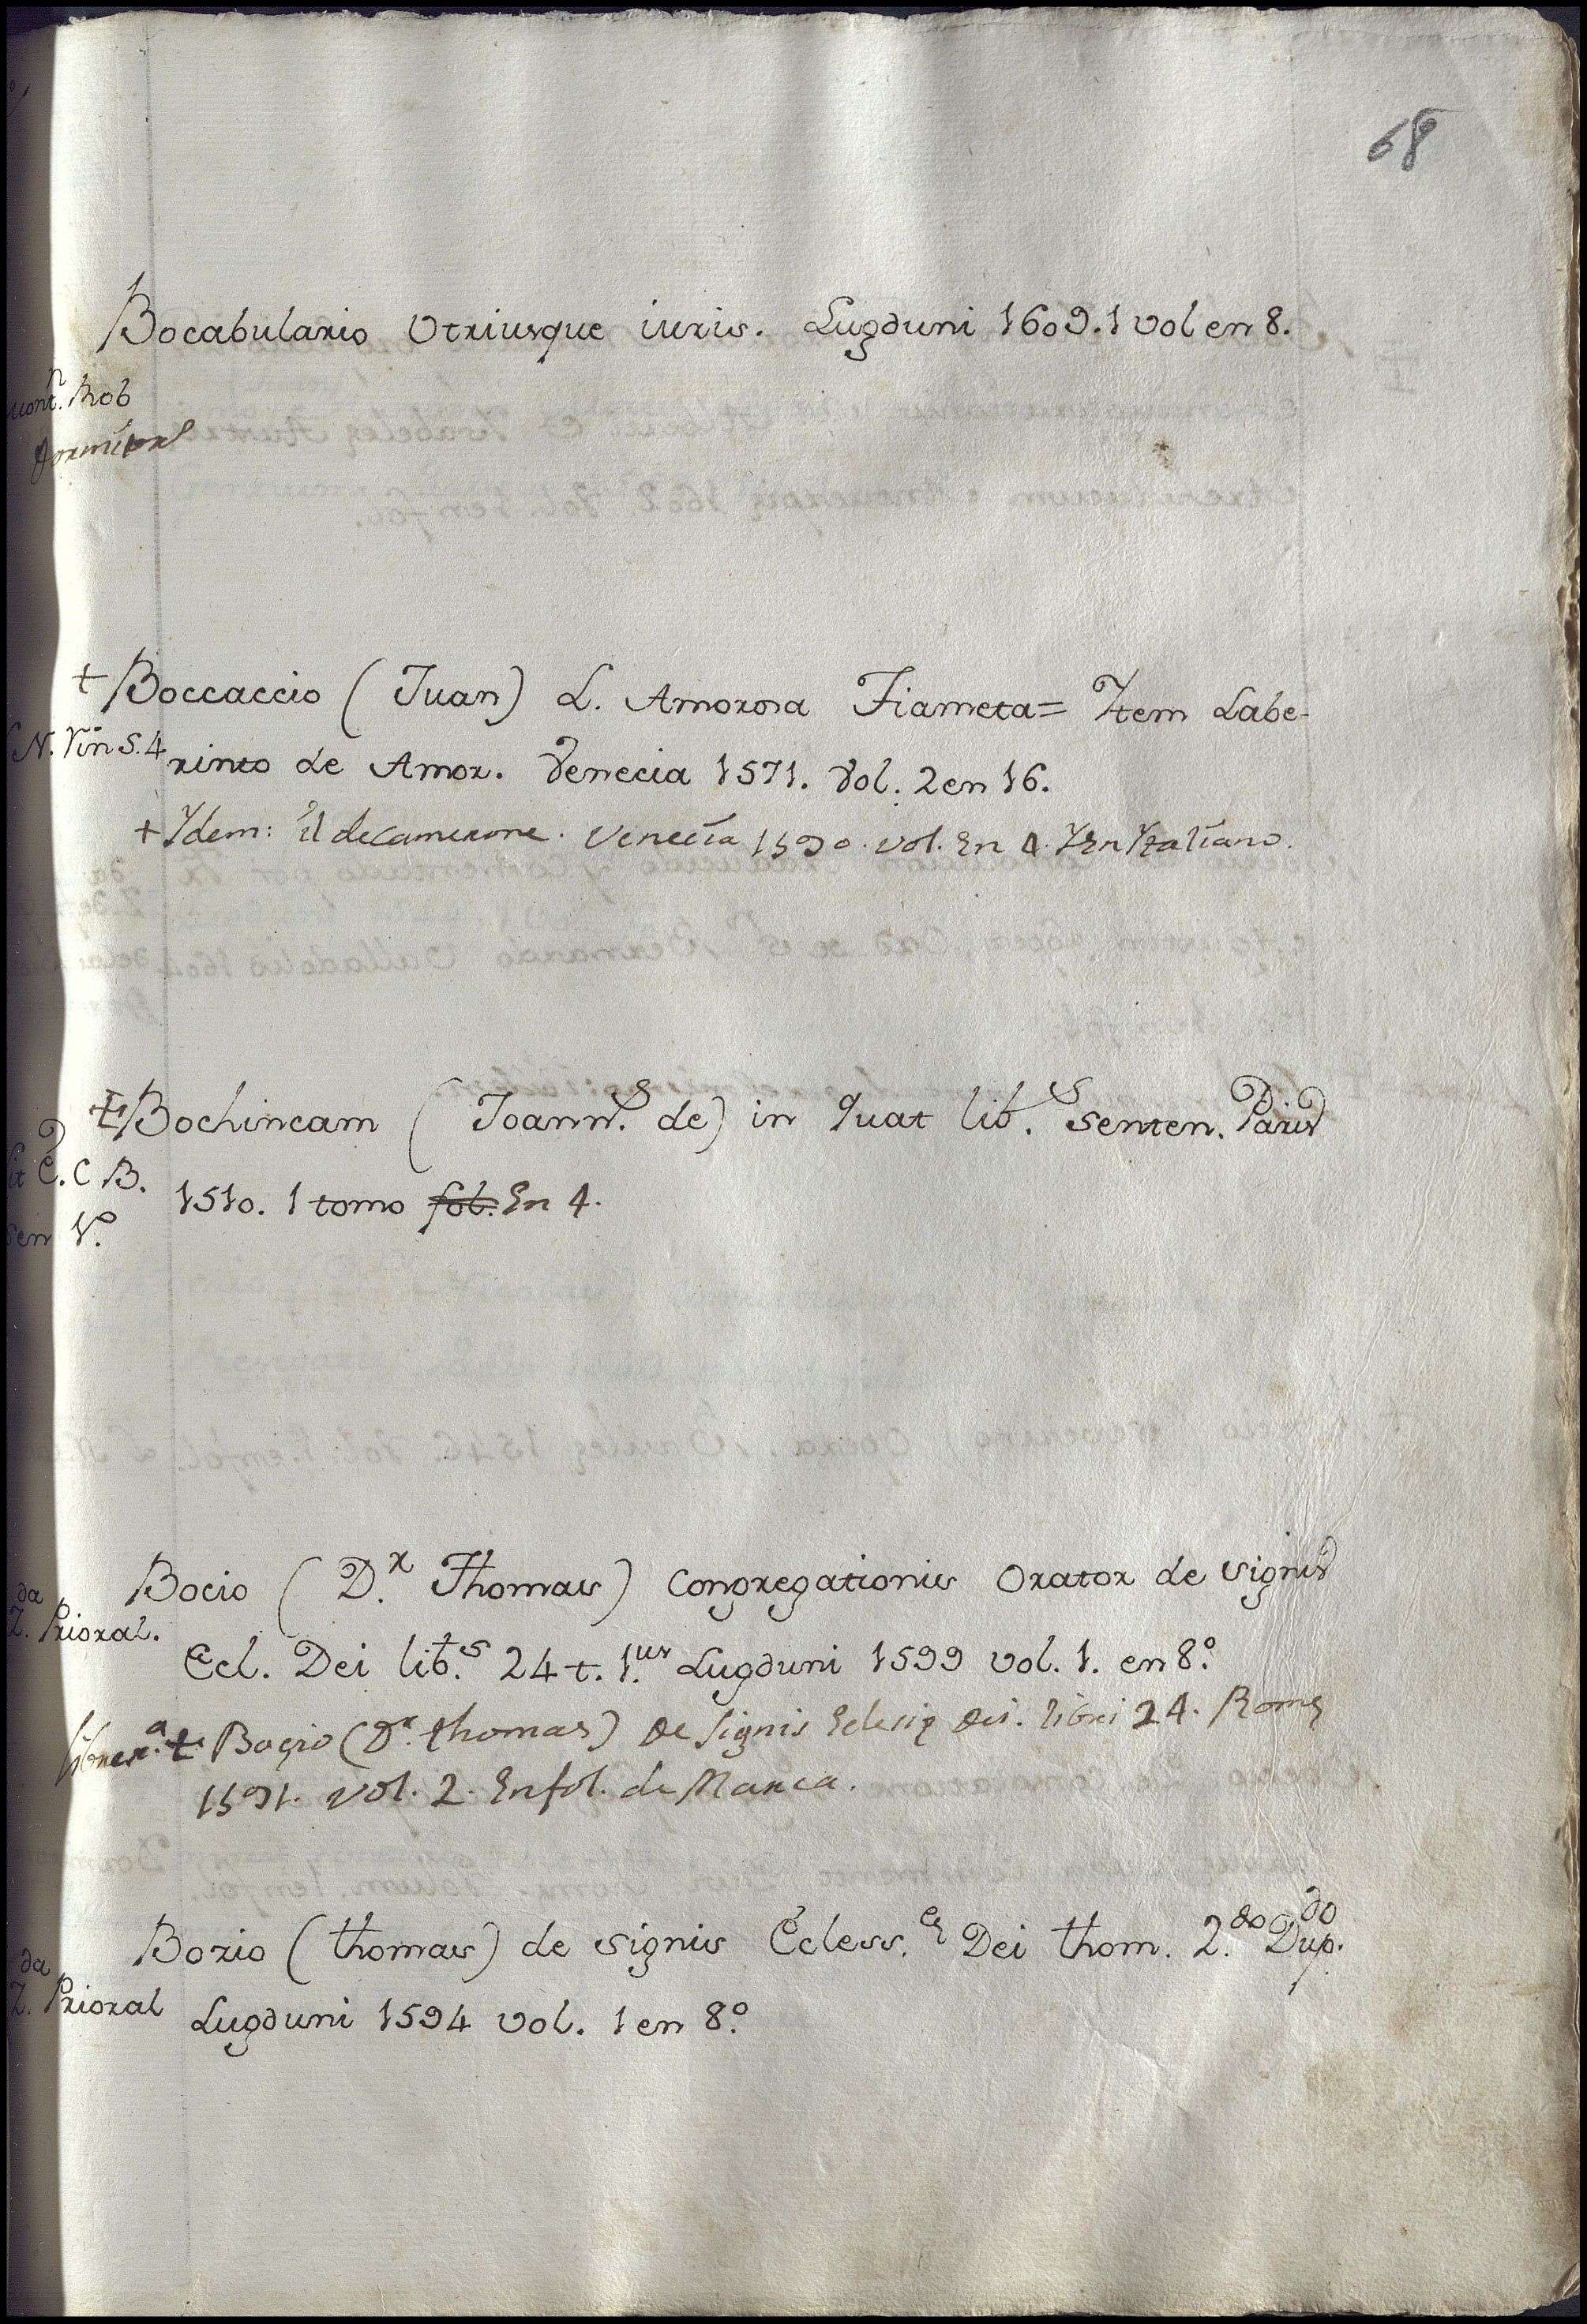 68
Bocabulario Utriusque iuris. Lugduni 1609. 1 vol en 8.
Rob
+ Boccaccio (Juan) L. Amorosa Fiameta = Item Labe-
N. Vin S. 4
rinto de Amor. Venecia 1571. Vol. 2 en 16.
+ Ydem: il decamerone. Venecia 1590. vol. En 4. Y En Ytaliano.
Bochincam (Joann.s de) in quat lib.s Senten. Paris
C. C B.
1510. 1 tomo fol. En 4.
Bocio (D.r Thomas) Congregationis Orator de signis
da
Z. Prioral.
Ecl. Dei lib.s 24 t. 1.us Lugduni 1599 vol. 1. en 8.º
Librer.a t. Boçio (D.r thomas) De Signis Eclesię Dei. Libri 24. Romę
1591. Vol. 2. En fol. de Marca.
Bozio (thomas) de signis Ecless.ę Dei thom. 2.do Dup.do
da
Z. Prioral
Lugduni 1594 vol. 1 en 8.º